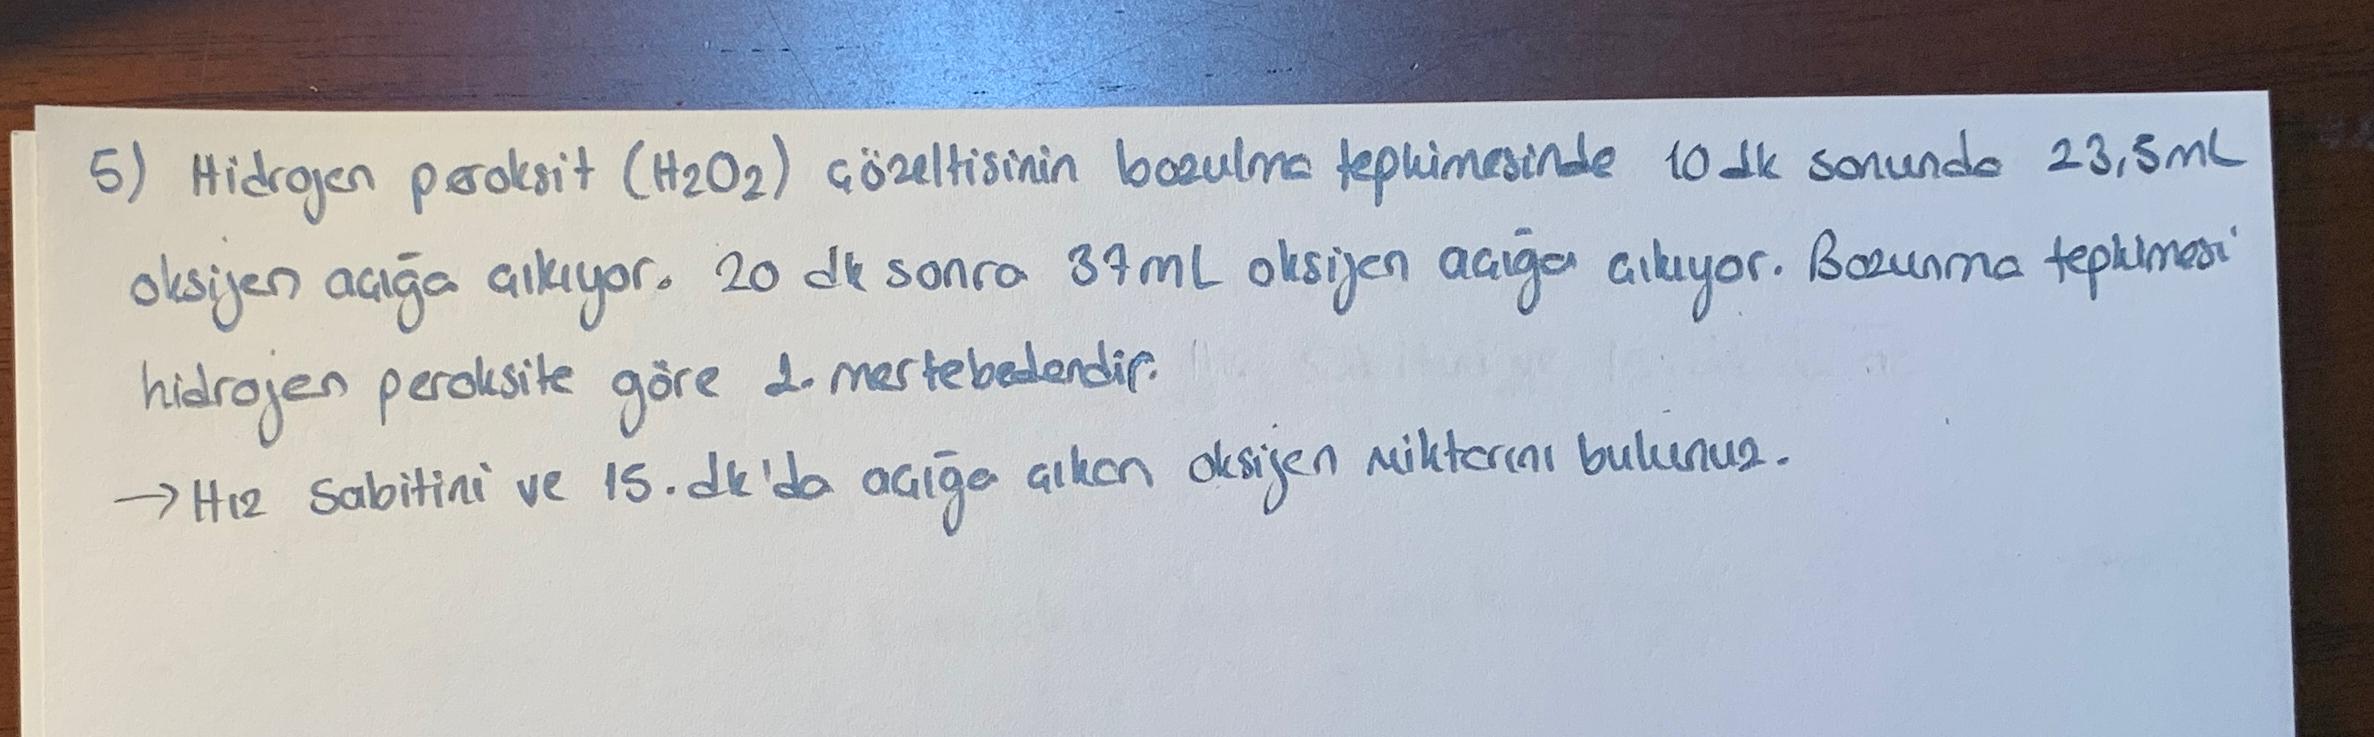 5) Hidrojen peroksit (H2O2) çözeltisinin bozulma tepkimesinde 10 dk sonunda 23,5mL
oksijen açığa çıkıyor. 20 dk sonra 37mL oksijen açığa çıkıyor. Bozunma tepkimesi
hidrojen peroksite göre 1. mertebedendir.
→ Hız sabitini ve 15. dk'da açığa çıkan oksijen miktarını bulunuz.